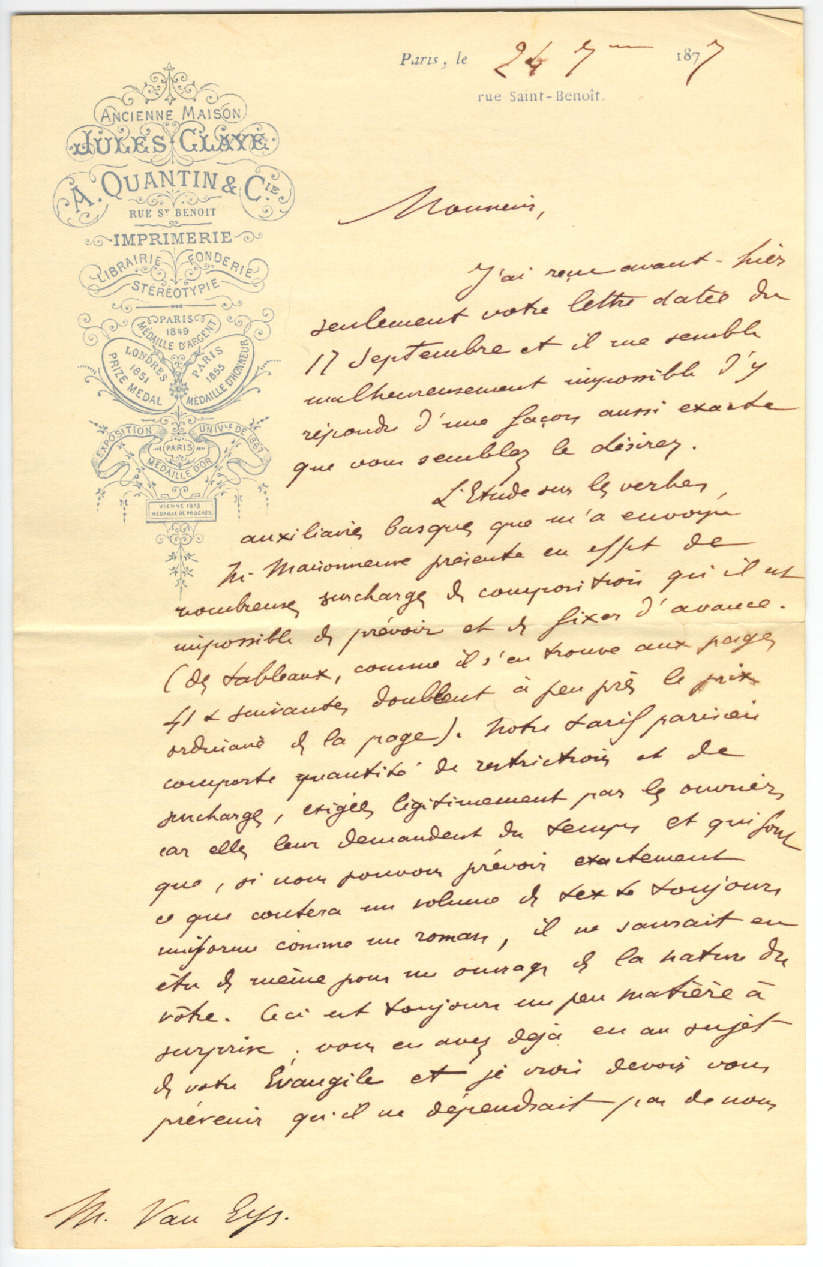 Paris, le 24 7bre 1877
rue Saint-Benoît.
ANCIENNE MAISON
JULES CLAYE
A. QUANTIN & CIE
RUE ST BENOIT
IMPRIMERIE
LIBRAIRIE FONDERIE
STÉRÉOTYPIE
PARIS
1849
MÉDAILLE D'ARGENT
LONDRES
1851
PRIZE MEDAL
PARIS
1855
MÉDAILLE D'HONNEUR
EXPOSITION UNIVLE DE 1867
PARIS
MÉDAILLE D'OR
VIENNE 1873
MÉDAILLE DE PROGRÈS
Monsieur,
J'ai reçu avant-hier
seulement votre lettre datée du
17 Septembre et il me semble
malheureusement impossible d'y
répondre d'une façon aussi exacte
que vous semblez le désirer.
L'Etude sur les verbes
auxiliaires basques que m'a envoyée
M. Maisonneuve présente en effet de
nombreuses surcharges de composition qu'il est
impossible de prévoir et de fixer d'avance.
(des tableaux, comme il s'en trouve aux pages
41 & suivantes doublent à peu près le prix
ordinaire de la page). Notre tarif parisien
comporte quantité de restrictions et de
surcharges, exigées légitimement par les ouvriers
car elles leur demandent du temps et qui font
que, si nous pouvons prévoir exactement
ce que coutera un volume de texte toujours
uniforme comme un roman, il ne saurait en
être de même pour un ouvrage de la nature du
vôtre. Ceci est toujours un peu matière à
surprise ; vous en avez déjà eu au sujet
de votre Évangile et je crois devoir vous
prévenir qu'il ne dépendrait pas de nous
M. Van Eys.